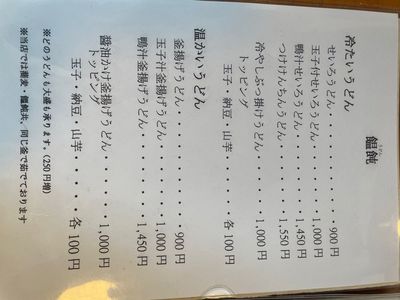 饂飩
うどん
冷たいうどん
せいろうどん・・・・・・・・・900円
玉子付せいろうどん・・・・・1,000円
鴨汁せいろうどん・・・・・・1,450円
つけけんちんうどん・・・・・1,550円
冷やしぶっ掛けうどん・・・・1,000円
トッピング
玉子・納豆・山芋・・・・・各100円
温かいうどん
釜揚げうどん・・・・・・・・・900円
玉子汁釜揚げうどん・・・・・1,000円
鴨汁釜揚げうどん・・・・・・1,450円
醤油かけ釜揚げうどん・・・・1,000円
トッピング
玉子・納豆・山芋・・・・各100円
※どのうどんも大盛も承ります。(250円増)
※当店では蕎麦・饂飩共、同じ釜で茹でております